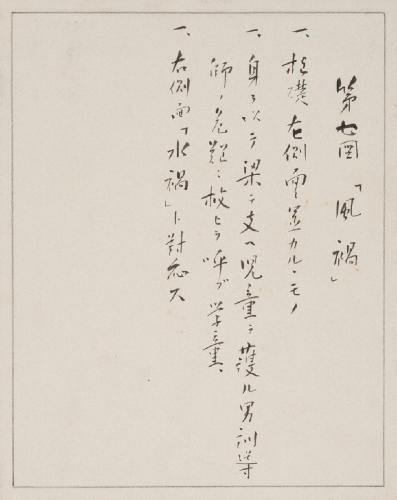 第七図「風禍」
一、柱礎左側面ニ置カルヽモノ
一、身ヲ以テ梁ヲ支ヘ児童ヲ護ル男訓導
師ノ危難ニ救ヒヲ呼ブ学童、
一、右側面「水禍」ト対応ス